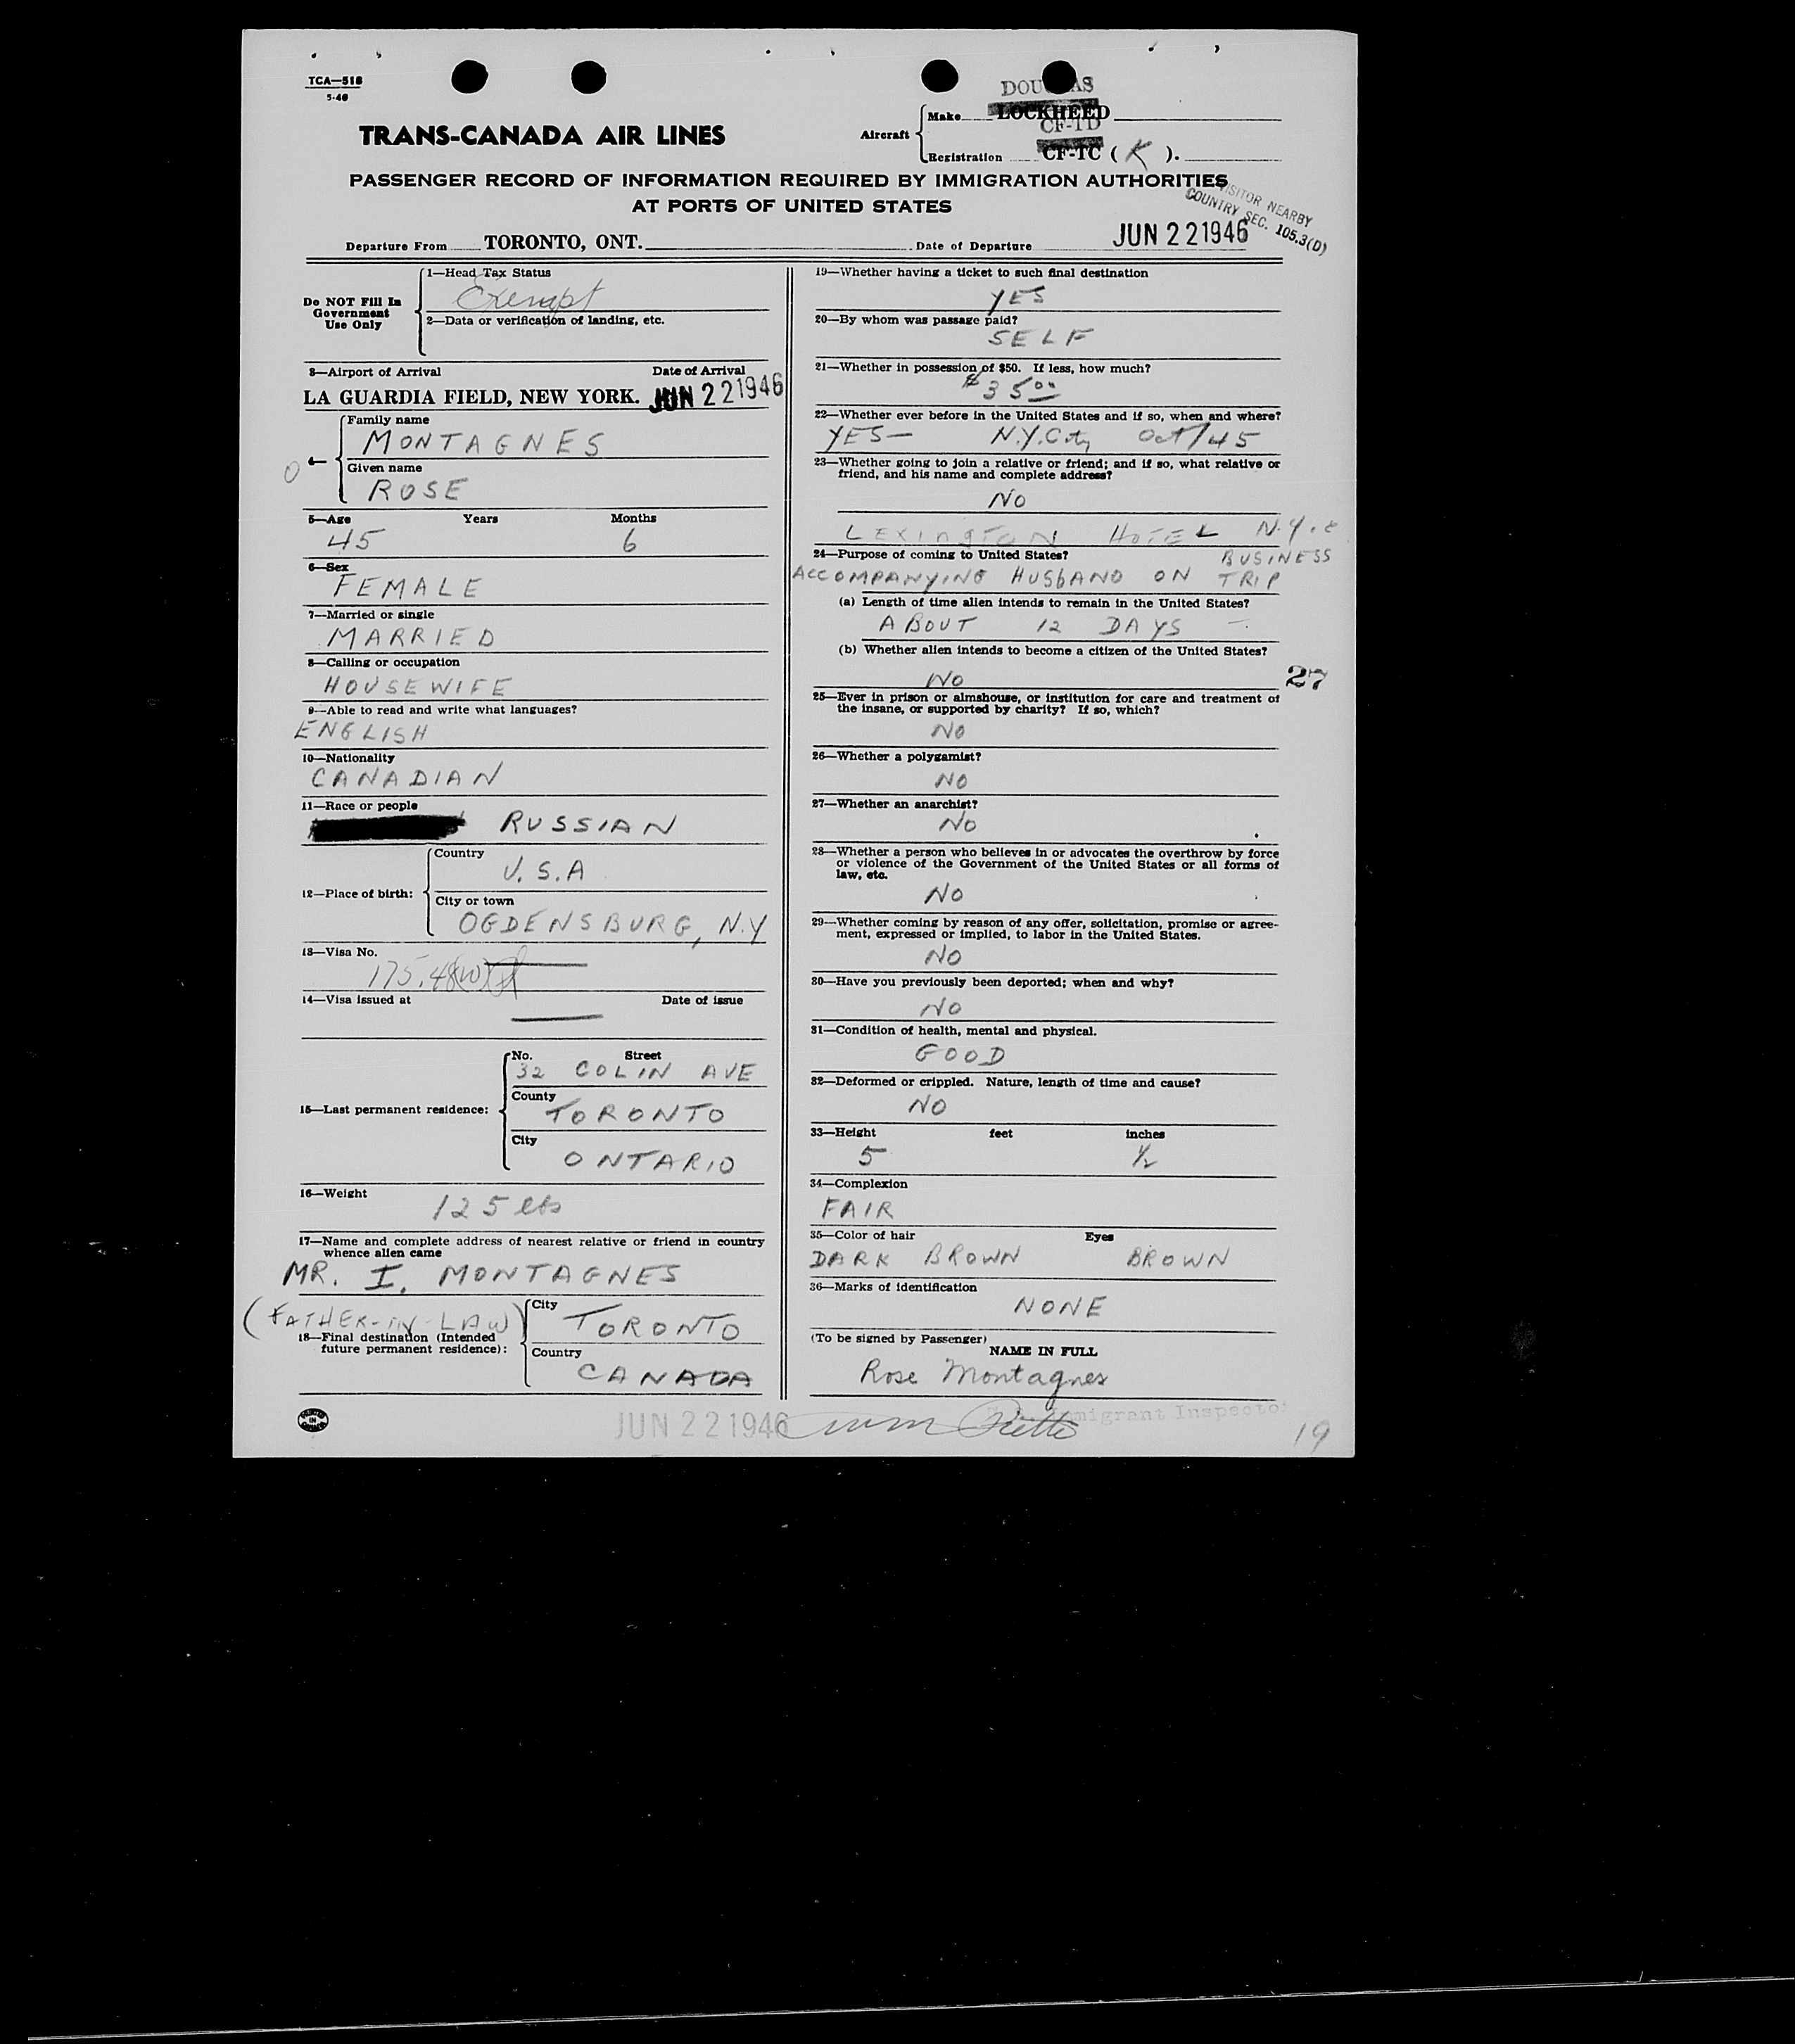 TCA—518
5-46
TRANS-CANADA AIR LINES
Aircraft
DOUGLAS
Make LOCKHEED
CF-TD
Registration CF-TC ( K ).
PASSENGER RECORD OF INFORMATION REQUIRED BY IMMIGRATION AUTHORITIES
AT PORTS OF UNITED STATES
VISITOR NEARBY
COUNTRY SEC. 105.3(D)
Departure From TORONTO, ONT. Date of Departure JUN 22 1946
Do NOT Fill In
Government
Use Only
1—Head Tax Status
Exempt
2—Data or verification of landing, etc.
3—Airport of Arrival Date of Arrival
LA GUARDIA FIELD, NEW YORK. JUN 22 1946
4—
Family name
MONTAGNES
Given name
ROSE
5—Age Years Months
45 6
6—Sex
FEMALE
7—Married or single
MARRIED
8—Calling or occupation
HOUSEWIFE
9—Able to read and write what languages?
ENGLISH
10—Nationality
CANADIAN
11—Race or people
RUSSIAN
12—Place of birth:
Country
U.S.A
City or town
OGDENSBURG, N.Y
13—Visa No.
175.48(w)
14—Visa issued at Date of issue
15—Last permanent residence:
No. Street
32 COLIN AVE
County
TORONTO
City
ONTARIO
16—Weight
125 lbs
17—Name and complete address of nearest relative or friend in country
whence alien came
MR. I. MONTAGNES
(FATHER-IN-LAW)
18—Final destination (Intended
future permanent residence):
City
TORONTO
Country
CANADA
19—Whether having a ticket to such final destination
YES
20—By whom was passage paid?
SELF
21—Whether in possession of $50. If less, how much?
$35.00
22—Whether ever before in the United States and if so, when and where?
YES— N.Y. City Oct/45
23—Whether going to join a relative or friend; and if so, what relative or
friend, and his name and complete address?
NO
LEXINGTON HOTEL N.Y.C
24—Purpose of coming to United States?
BUSINESS
ACCOMPANYING HUSBAND ON TRIP
(a) Length of time alien intends to remain in the United States?
ABOUT 12 DAYS —
(b) Whether alien intends to become a citizen of the United States?
NO
27
25—Ever in prison or almshouse, or institution for care and treatment of
the insane, or supported by charity? If so, which?
NO
26—Whether a polygamist?
NO
27—Whether an anarchist?
NO
28—Whether a person who believes in or advocates the overthrow by force
or violence of the Government of the United States or all forms of
law, etc.
NO
29—Whether coming by reason of any offer, solicitation, promise or agree-
ment, expressed or implied, to labor in the United States.
NO
30—Have you previously been deported; when and why?
NO
31—Condition of health, mental and physical.
GOOD
32—Deformed or crippled. Nature, length of time and cause?
NO
33—Height feet inches
5 ½
34—Complexion
FAIR
35—Color of hair Eyes
DARK BROWN BROWN
36—Marks of identification
NONE
(To be signed by Passenger)
NAME IN FULL
Rose Montagnes
JUN 22 1946
Immigrant Inspector
19